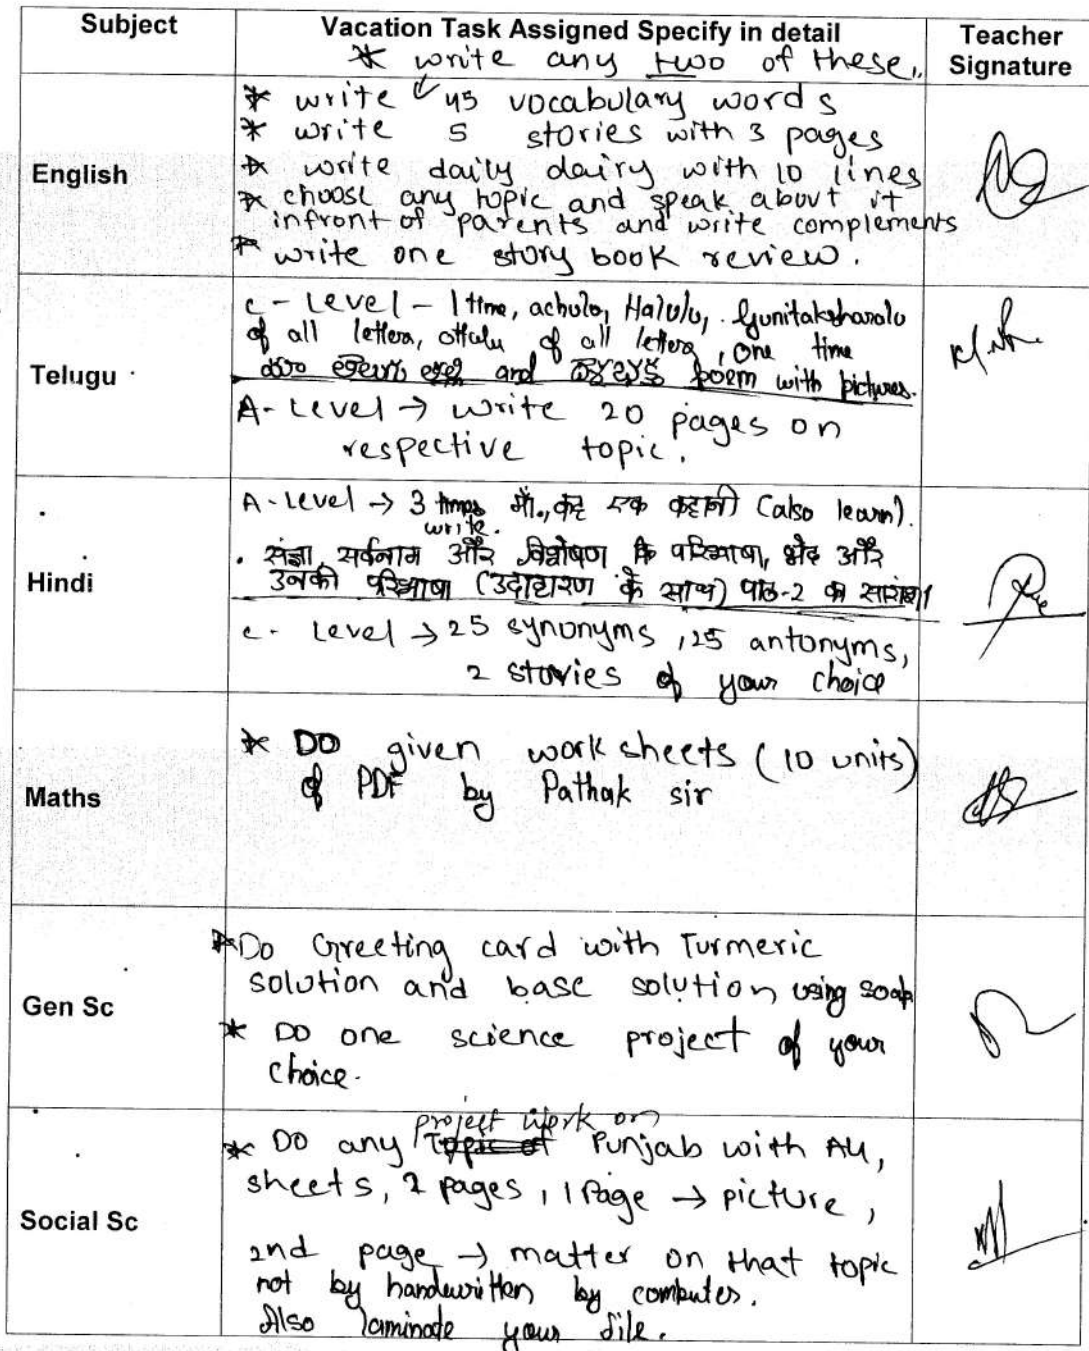 Subject
Vacation Task Assigned Specify in detail
Teacher Signature
* write any two of these.
English
* write 45 vocabulary words
* write 5 stories with 3 pages
* write daily dairy with 10 lines
* choose any topic and speak about it
infront of parents and write complements
* write one story book review.
Telugu
c - Level - 1 time, achulu, Halulu, Gunitaksharalu
of all letters, ottulu of all letters, one time
and poem with pictures.
A - Level → write 20 pages on
respective topic.
Hindi
A - Level → 3 times write. माँ, कह एक कहानी (also learn).
. संज्ञा, सर्वनाम और विशेषण कि परिभाषा, भेद और
उनकी परिभाषा (उदाहारण के साथ) पाठ-2 का सारांश।
c - Level → 25 synonyms, 25 antonyms,
2 stories of your choice
Maths
* DO given work sheets (10 units)
of PDF by Pathak sir
Gen Sc
* Do Greeting card with Turmeric
solution and base solution using soap
* DO one science project of your
choice.
Social Sc
* DO any project work on Punjab with A4,
sheets, 2 pages, 1 Page → picture,
2nd page → matter on that topic
not by handwritten by computer.
Also laminate your file.